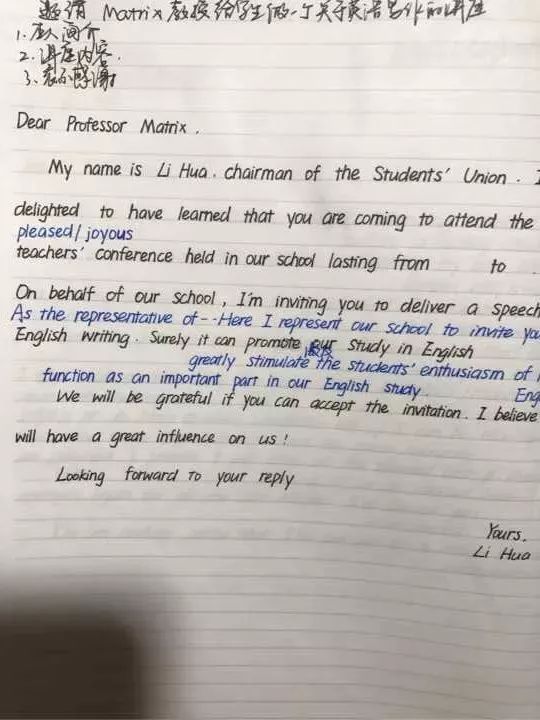 邀请 Matrix 教授给学生做一个关于英语写作的讲座
1. 个人简介
2. 讲座内容.
3. 表示感谢
Dear Professor Matrix.
My name is Li Hua. chairman of the Students' Union.
delighted to have learned that you are coming to attend the
pleased/joyous
teachers' conference held in our school lasting from to .
On behalf of our school, I'm inviting you to deliver a speech
As the representative of -- Here I represent our school to invite you
English writing. Surely it can promote our study in English
greatly stimulate the students' enthusiasm of
function as an important part in our English study. Eng
We will be grateful if you can accept the invitation. I believe
will have a great influence on us!
Looking forward to your reply
Yours.
Li Hua